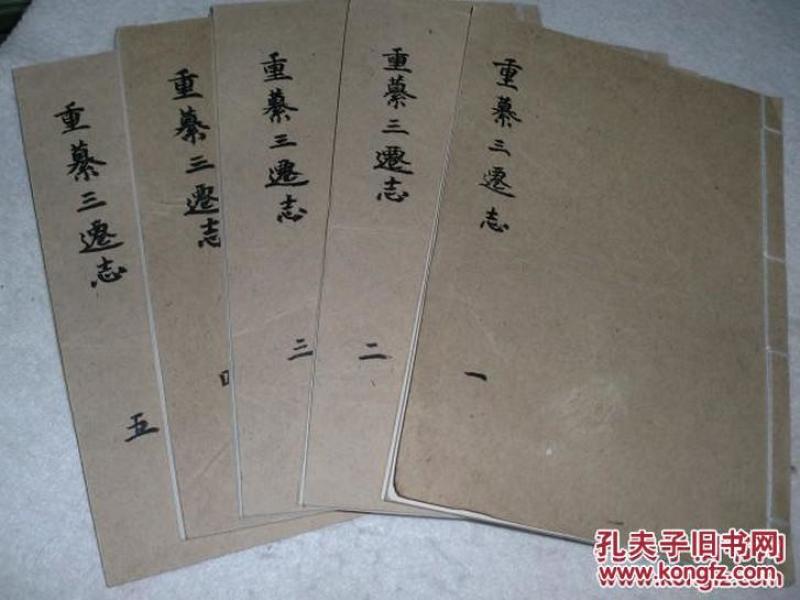 重纂三遷志
一
重纂三遷志
二
重纂三遷志
三
重纂三遷志
重纂三遷志
五
孔夫子旧书网
www.kongfz.com